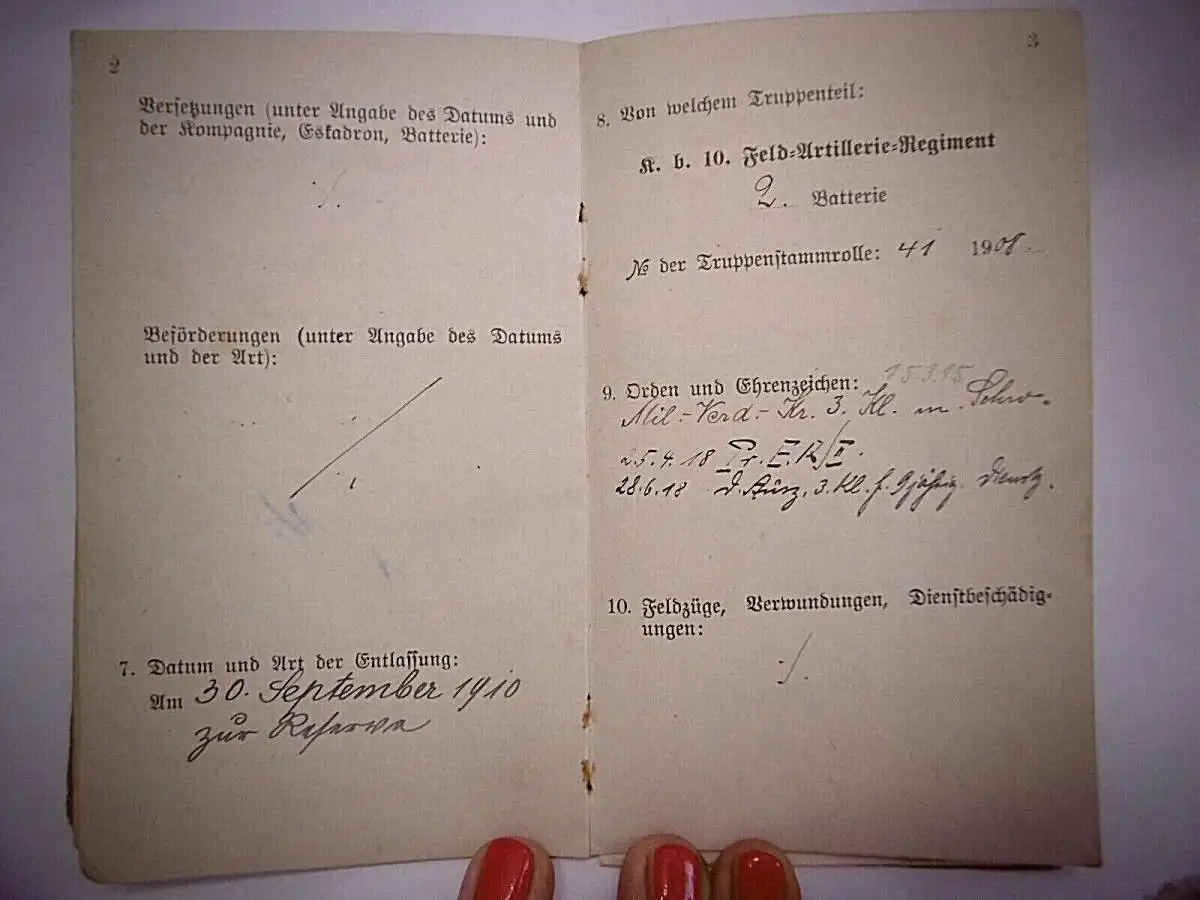 2
Versetzungen (unter Angabe des Datums und
der Kompagnie, Eskadron, Batterie):
·/.
Beförderungen (unter Angabe des Datums
und der Art):
7. Datum und Art der Entlassung:
Am 30. September 1910
zur Reserve
3
8. Von welchem Truppenteil:
K. b. 10. Feld-Artillerie-Regiment
2. Batterie
№ der Truppenstammrolle: 41 1908.
9. Orden und Ehrenzeichen: 15.3.15
Mil.-Verd.-Kr. 3. Kl. m. Schw.
25.4.18 Pr. E.K/II.
28.6.18 3. Kl. f. 9jährig.
10. Feldzüge, Verwundungen, Dienstbeschädig-
ungen:
·/.